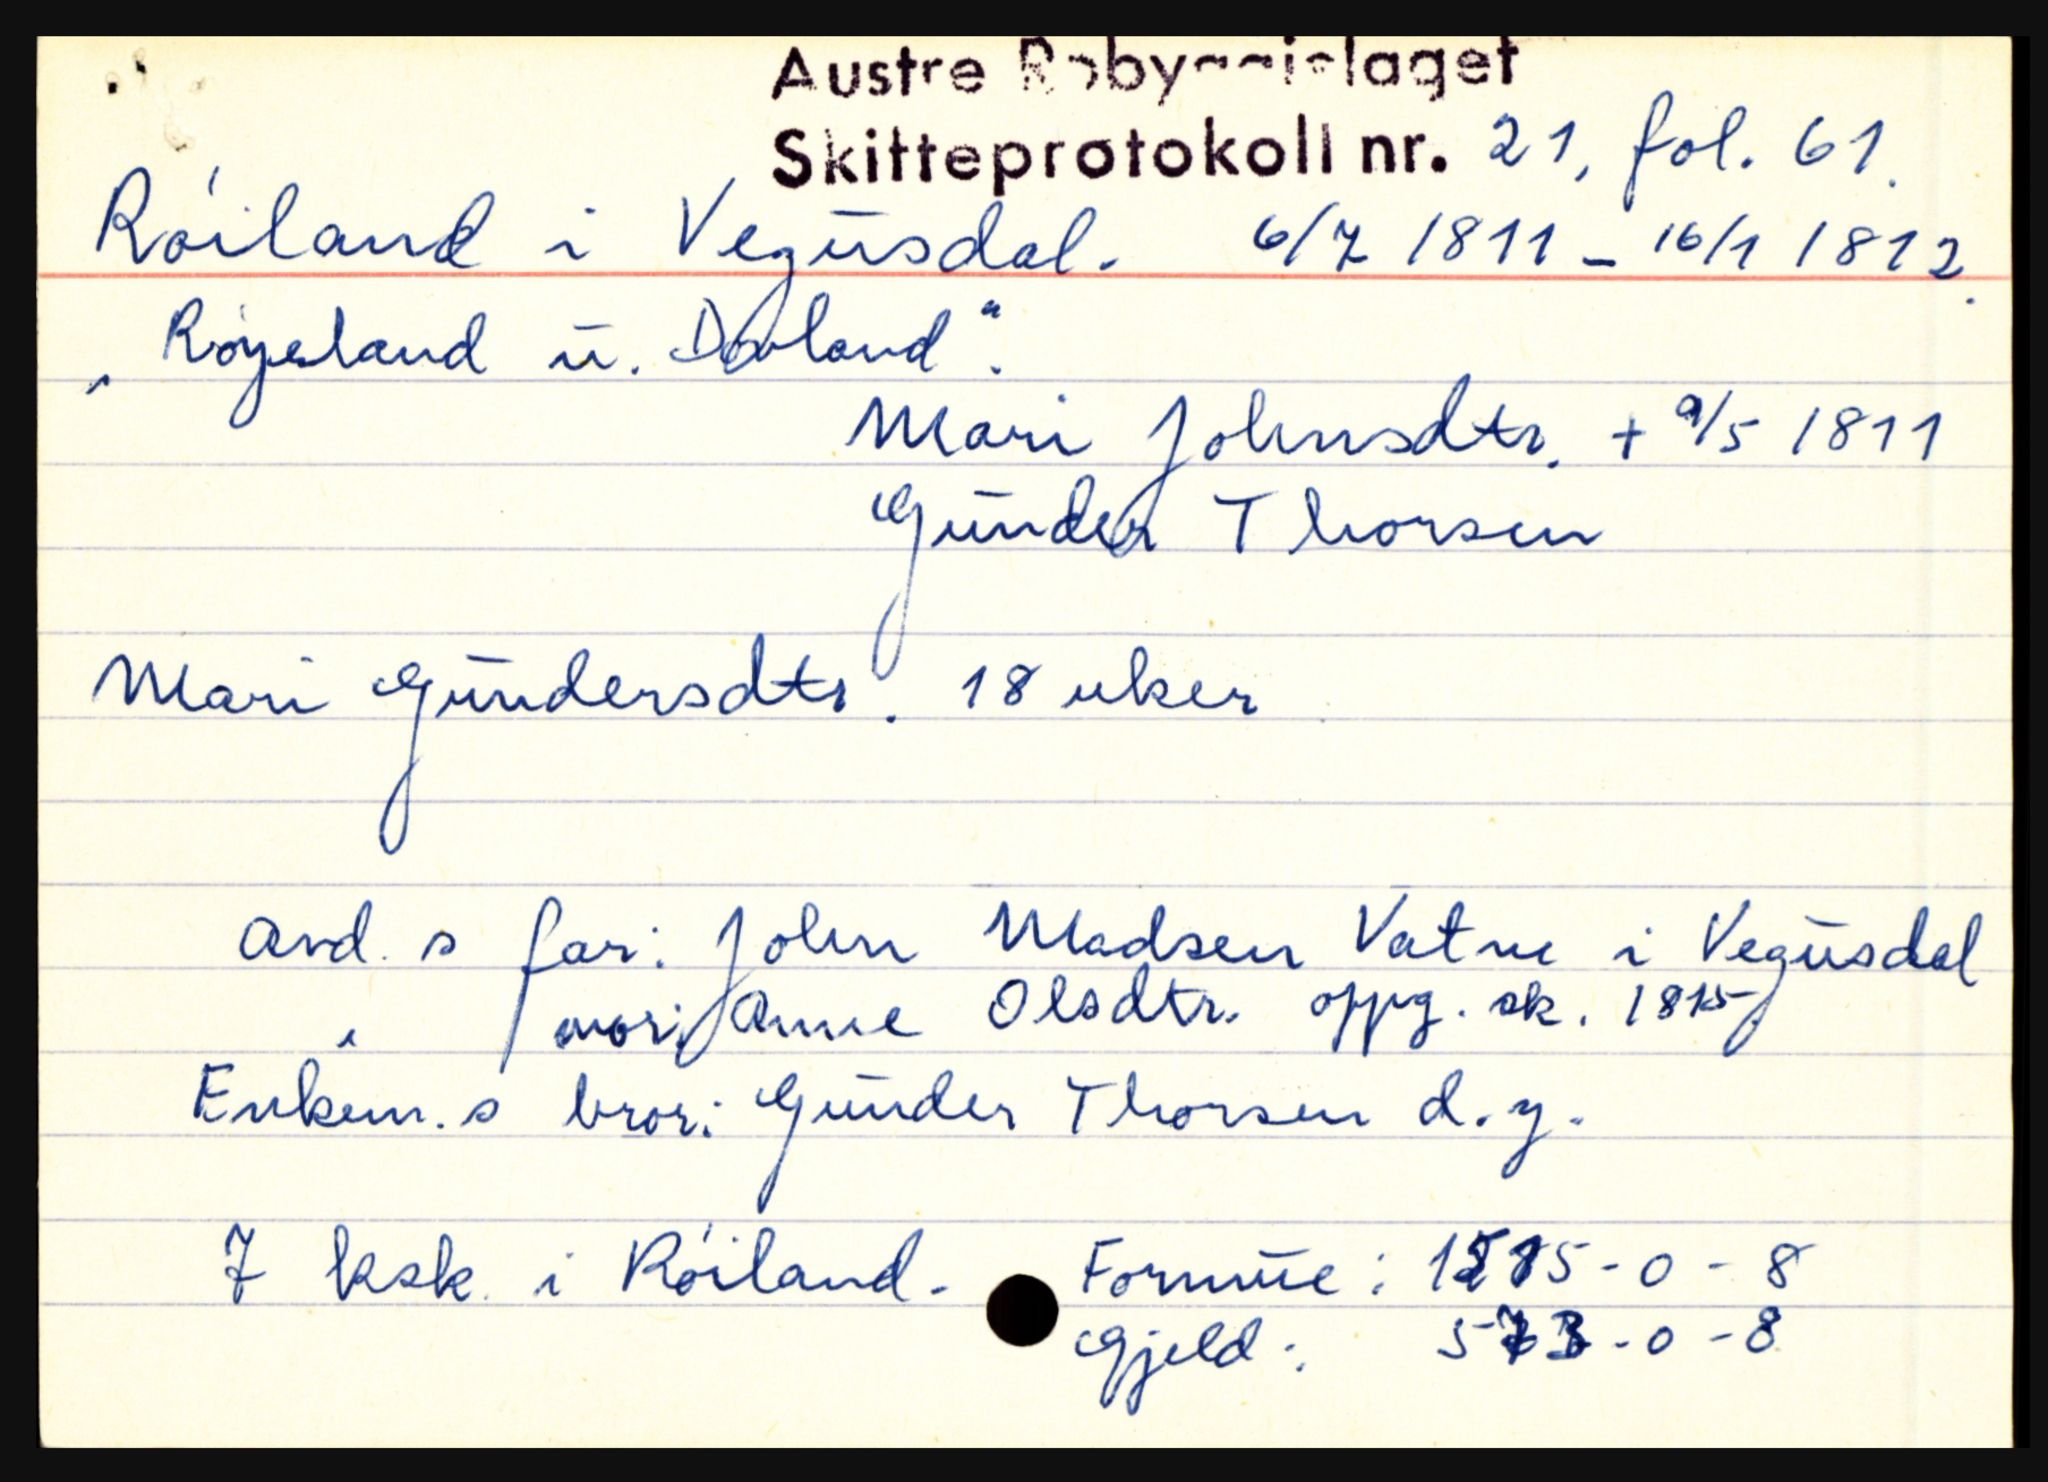 Austre Robyggjelaget
Skifteprotokoll nr. 21, fol. 61.
Röiland i Vegusdal. 6/7 1811 - 16/1 1812.
„Røyseland u. Dovland".
Mari Johnsdtr. + 9/5 1811
Gunder Thorsen
Mari Gundersdtr. 18 uker
Avd. s far: John Madsen Vatne i Vegusdal
" mor: Anne Olsdtr. oppg. sk. 1815
Enkem. s bror: Gunder Thorsen d.y.
7 ksk. i Röiland. Formue: -0-8
Gjeld: -0-8